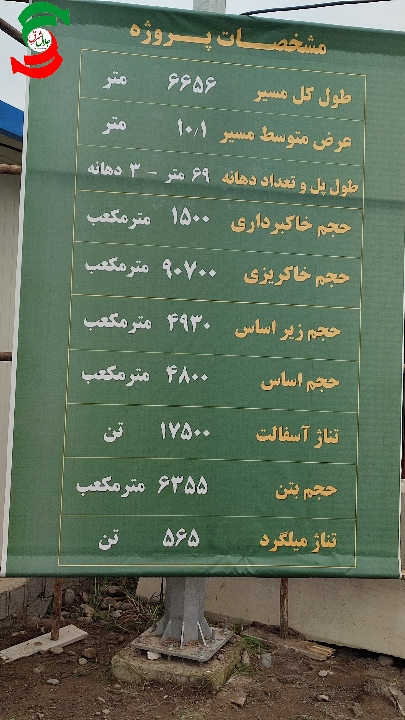 مشخصات پروژه
طول کل مسیر ۶۶۵۶ متر
عرض متوسط مسیر ۱۰/۱ متر
طول پل و تعداد دهانه ۶۹ متر - ۳ دهانه
حجم خاکبرداری ۱۵۰۰ مترمکعب
حجم خاکریزی ۹۰۷۰۰ مترمکعب
حجم زیر اساس ۴۹۳۰ مترمکعب
حجم اساس ۴۸۰۰ مترمکعب
تناژ آسفالت ۱۷۵۰۰ تن
حجم بتن ۶۳۵۵ مترمکعب
تناژ میلگرد ۵۶۵ تن